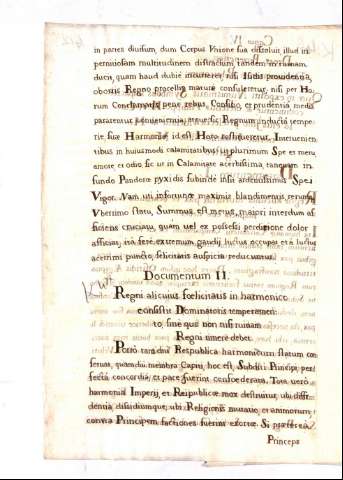 in partes divisum, dum Corpus Unione sua dissolvit illud in
perniciosam multitudinem distractum, tandem in ruinam
ducit, quam haud dubiè incurreret, nisi Iustis providentia,
obortis Regno procellis mature consuleretur, nisi per Ho
rum pene rebus, Consilio, et prudentia media
pararentur convenientia; atque sic Regnum in
rie suæ Harmoniæ id est: Horo restitueretur. Intervenien
tibus in huiusmodi calamitatibus in plurimum Spe et metu
amore et odio sic ut in Calamitate acerbissima, tanquam in
fundo Pandoræ pyxidis subinde sit ardentissimus Spei
Vigor. Nam uti infortunæ maximè blandimenta
Uberrimo statu, Summus est metus, maiori interdum af
ficiens cruciatu, quam vel ex possessi perditione dolor
afficiat, ita ferè extremum gaudij luctus occupat et à luctus
acerrimi puncto, felicitatis auspicia reducuntur.
Documentum II.
Regni alicuius foelicitatis in harmonico
consistit Dominatoris temperamen:
to, sine quo non nisi ruinam
Regni timere debet.
Porrò tam diu Respublica harmonicum statum con
servat, quamdiu membra Capiti, hoc est, Subditi Principi, per
fecta concordia, et pace fuerint confoederata. Tota verò
harmonia Imperij et Reipublicæ mox destruitur, ubi diffi
dentia, dissidiumque, ubi Religionis mutatio et animorum
contra Principem factiones fuerint exortæ. Si
Princeps